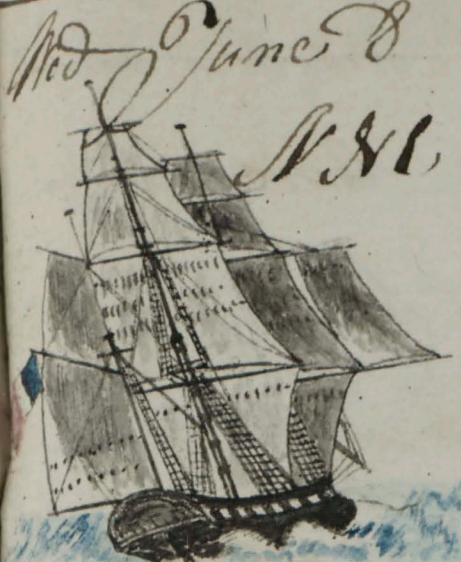 Wed June 8
N NE